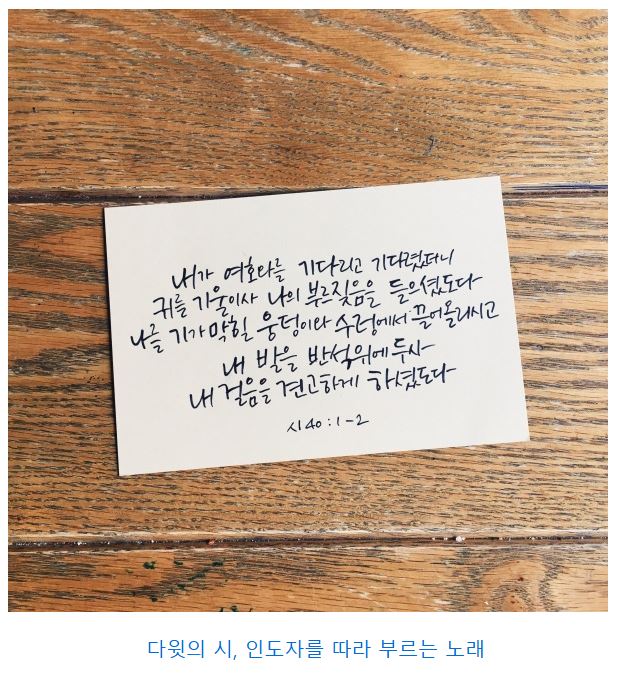 내가 여호와를 기다리고 기다렸더니
귀를 기울이사 나의 부르짖음을 들으셨도다
나를 기가 막힐 웅덩이와 수렁에서 끌어올리시고
내 발을 반석위에 두사
내 걸음을 견고하게 하셨도다
시 40 : 1 - 2
다윗의 시, 인도자를 따라 부르는 노래